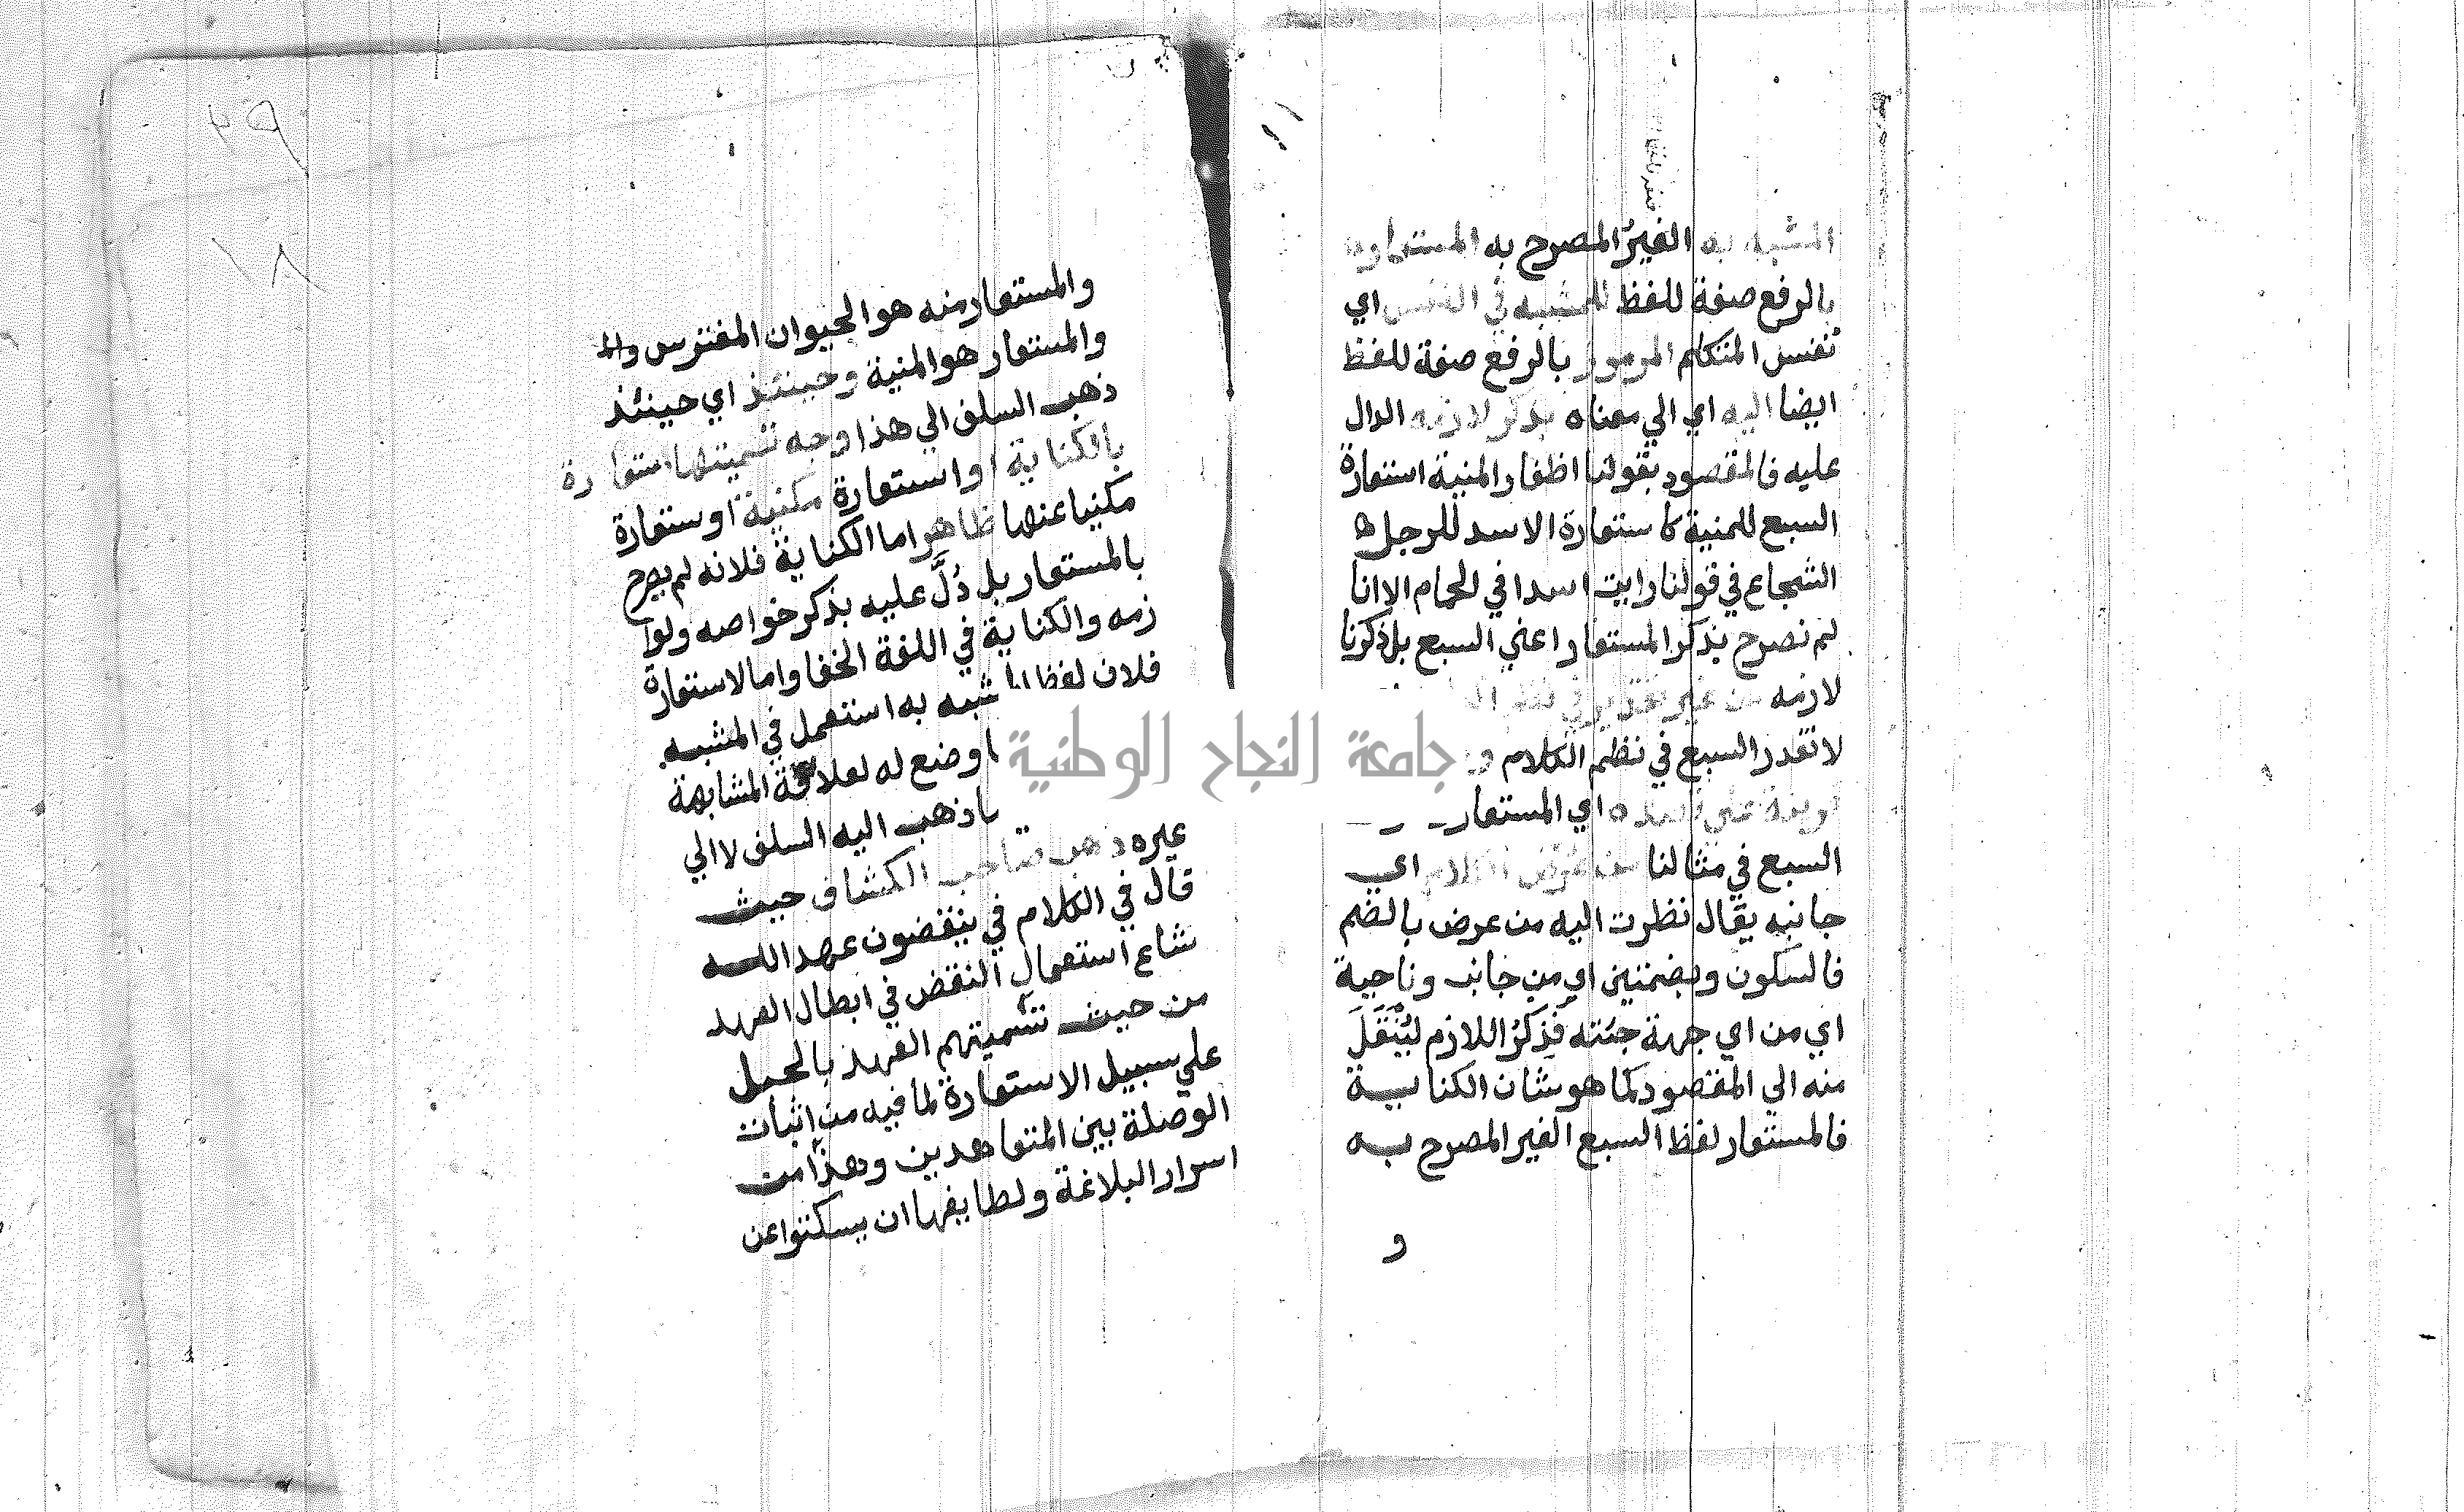 المشبه به الغيرُ المصرح به المستعار
بالرفع صفة للفظ للمشبه في النفس اي
نفس المتكلم المرموز بالرفع صفة للفظ
ايضا اليه اي الي معناه بذكر لازمه الدال
عليه فالمقصود بقولنا اظفار المنية استعارة
السبع للمنية كاستعارة الاسد للرجل
الشجاع في قولنا رايت اسدا في الحمام الا انا
لم نصرح بذكر المستعار اعني السبع بل ذكرنا
لازمه من غير تقدير في نظم
لا نقدر السبع في نظم الكلام
اي المستعار
السبع في مثالنا من عُرض الكلام اي
جانبه يقال نظرت اليه من عرض بالضم
فالسكون وبضمتين اي من جانب وناحية
اي من اي جهة جئته فَذِكرُ اللازم ليُنْقَلَ
منه الي المقصود كما هو شان الكناية
فالمستعار لفظ السبع الغير المصرح به
و
٢٩
١٨
والمستعار منه هو الحيوان المفترس والم
والمستعار هو المنية وحينئذ اي حينئذ
ذهب السلف الي هذا وجه تسميتها استعارة
بالكناية او استعارة مكنية او ستعارة
مكنيا عنها ظاهر اما الكناية فلانه لم يصرح
بالمستعار بل دُلَّ عليه بذكر خواصه ولوا
زمه والكناية في اللغة الخفا واما لاستعارة
فلان لفظ المشبه به استعمل في المشبه
اوضع له لعلاقة المشابهة
ذهب اليه السلف لا الي
غيره ذهب صاحب الكشاف حيث
قال في الكلام في ينقضون عهد الله
شاع استعمال النقض في ابطال العهد
من حيث تسميتهم العهد بالحبل
علي سبيل الاستعارة لما فيه من اثبات
الوصلة بين المتعاهدين وهذا من
اسرار البلاغة ولطايفها ان يسكتوا عن
جامعة النجاح الوطنية